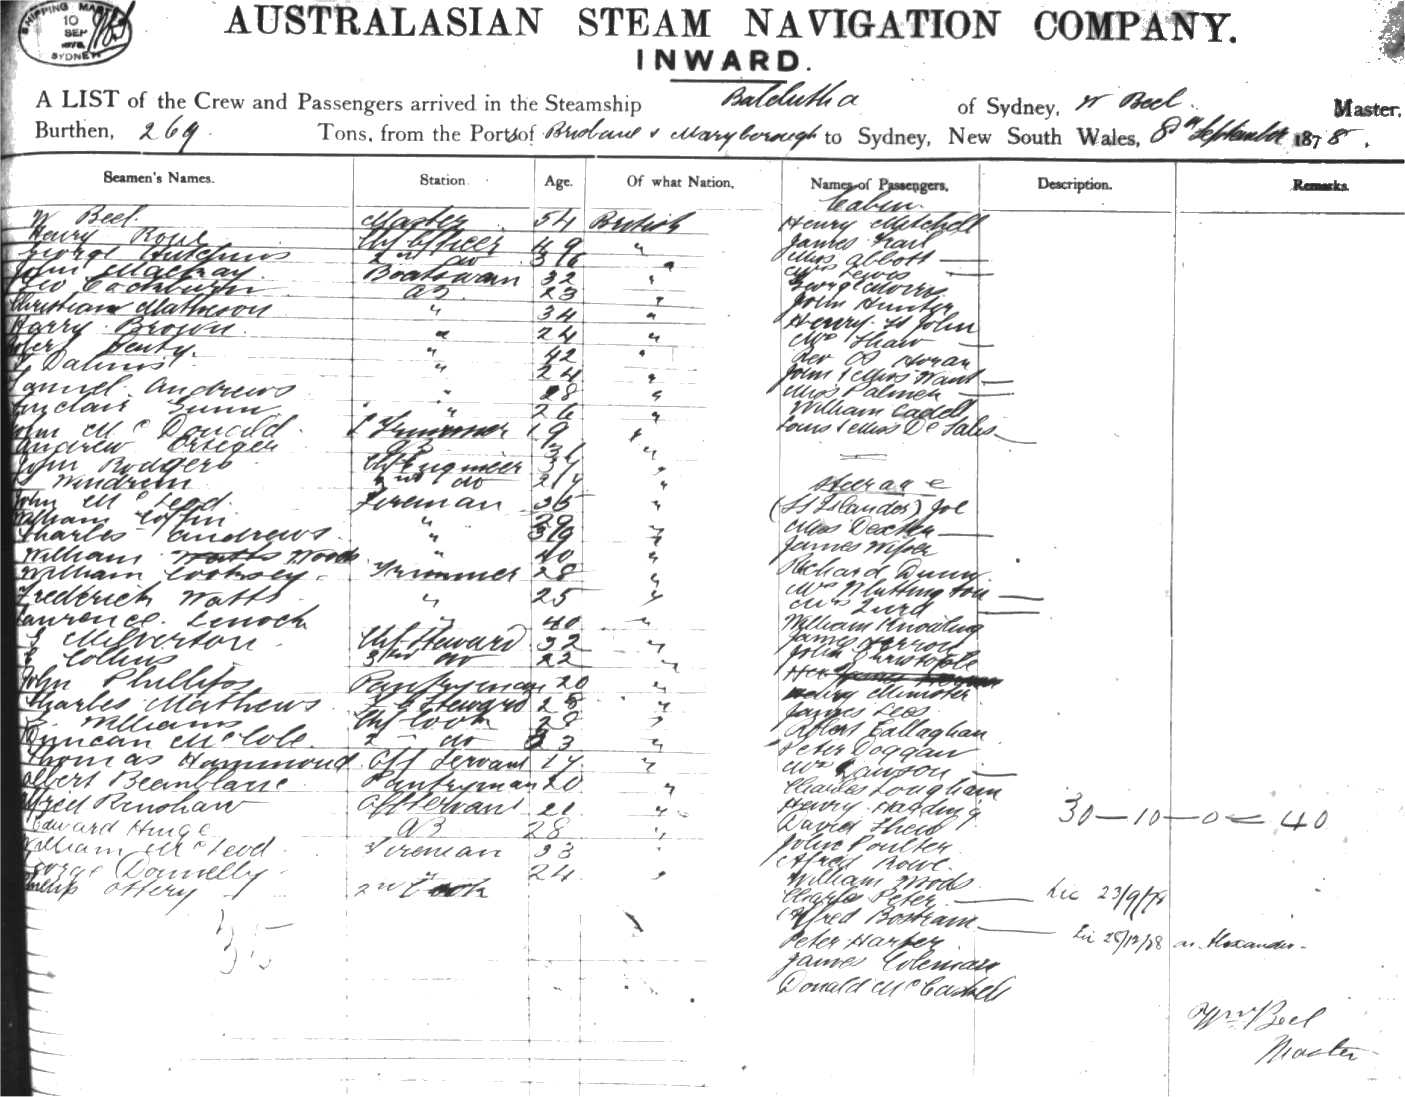 SHIPPING MASTER
10
SEP
1878
SYDNEY
AUSTRALASIAN STEAM NAVIGATION COMPANY.
INWARD.
A LIST of the Crew and Passengers arrived in the Steamship Balclutha of Sydney, W Beel Master,
Burthen, 269 Tons, from the Ports of Brisbane & Maryborough to Sydney, New South Wales, 8th September 1878.
Seamen's Names. Station Age. Of what Nation, Names of Passengers, Description. Remarks.
Cabin
W Beel Master 54 British Henry Mitchell
Henry Chf Officer 49 " James
George Hutchins 2nd do 36 " Mrs Abbott
John Mackay Boatswain 32 " Mrs Lewis
Geo Cockburn AB 23 " George Morris
Christian Matheson " 34 " John Hunter
Harry Brown " 24 " Henry St John
Henty " 42 " Mrs Shaw
" 24 " Rev Horan
Samuel Andrews " 28 " John & Mrs Want
Sinclair Gunn " 26 " Mrs Palmer
John McDonald Trimmer 19 " William Cadell
Andrew AB " Louis & Mrs De Sales
John Rodgers Chf Engineer 37 "
Windrim 2nd do 27 " Steerage
John McLeod Fireman 35 " (St Islander) Joe
William Coffin " 29 " Mrs
Charles Andrews " 39 " James
William Watts Woods " 40 " Richard Dunn
William Cooksey Trimmer 28 " Mrs Whittington
Frederick Watts " 25 " Mrs
Laurence Linoch " 40 " William Knowling
G Milverton Chf Steward 32 " James
Collins do 22 " John
John Phillips Pantryman 20 " Henry Minister
Charles Mathews Steward 28 " James Lees
Williams Chf Cook 28 " Albert Callaghan
Duncan McCole 2 do 33 " Peter Doggan
Thomas Hammond Off Servant 17 " Mrs Lawson
Albert Beamblane Pantryman 20 " Charles Lougham
Alfred Renshaw Off Servant 21 " Henry Harding
Edward Hinge AB 28 " David 30—10—0 = 40
William McLeod Fireman 33 " John Poulter
George Donnelly " 24 " Alfred Rowe
Philip Ottery 2nd Cook William Woods
Charles Peter Lic 23/9/78
35 Alfred Bostram Lic 28/12/78 as Alexander
Peter Harper
James Coleman
Donald McCaskell
Wm Beel
Master